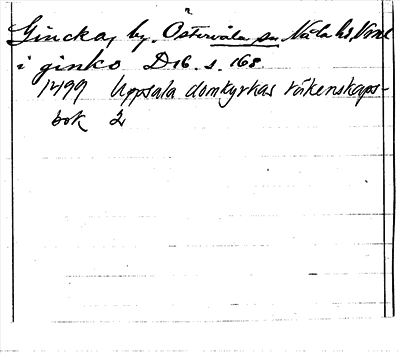 Gincka, by. Östervåla sn Våla hd, Vml
i ginko D 16. s. 168
1499 Uppsala domkyrkas räkenskaps-
bok 2